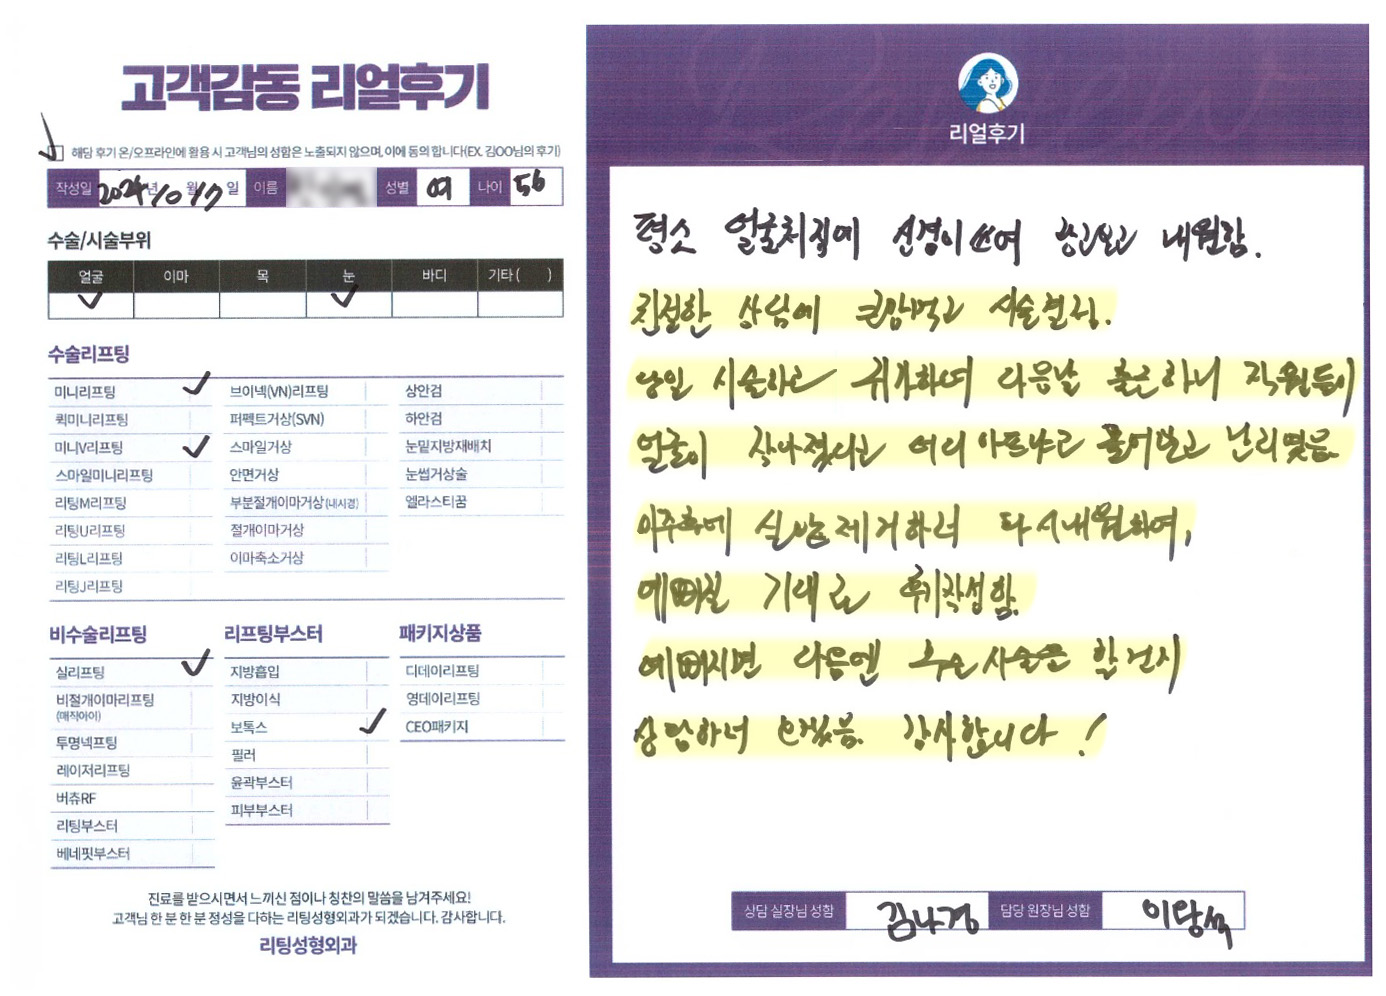 고객감동 리얼후기
해당 후기 온/오프라인에 활용 시 고객님의 성함은 노출되지 않으며, 이에 동의 합니다(EX. 김OO님의 후기)
작성일 2024년 10월 17일 이름 성별 여 나이 56
수술/시술부위
얼굴 이마 목 눈 바디 기타 ( )
수술리프팅
미니리프팅 브이넥(VN)리프팅 상안검
퀵미니리프팅 퍼펙트거상(SVN) 하안검
미니V리프팅 스마일거상 눈밑지방재배치
스마일미니리프팅 안면거상 눈썹거상술
리팅M리프팅 부분절개이마거상 (내시경) 엘라스티꿈
리팅U리프팅 절개이마거상
리팅L리프팅 이마축소거상
리팅J리프팅
비수술리프팅 리프팅부스터 패키지상품
실리프팅 지방흡입 디데이리프팅
비절개이마리프팅 지방이식 영데이리프팅
(매직아이)
보톡스 CEO패키지
투명넥프팅 필러
레이저리프팅 윤곽부스터
버츄RF 피부부스터
리팅부스터
베네핏부스터
진료를 받으시면서 느끼신 점이나 칭찬의 말씀을 남겨주세요!
고객님 한 분 한 분 정성을 다하는 리팅성형외과가 되겠습니다. 감사합니다.
리팅성형외과
리얼후기
평소 얼굴처짐에 신경이 쓰여 광고보고 내원함.
친절한 상담에 큰맘먹고 시술결정.
당일 시술하고 귀가하여 다음날 출근하니 직원들이
얼굴이 작아졌다고 어디 아프냐고 물어보고 난리났음.
이주후에 실밥제거하러 다시 내원하여,
예뻐질 기대로 후기작성함.
예뻐지면 다음엔 수술을 할건지
상담하러 오겠음. 감사합니다 !
상담 실장님 성함 김나경 담당 원장님 성함